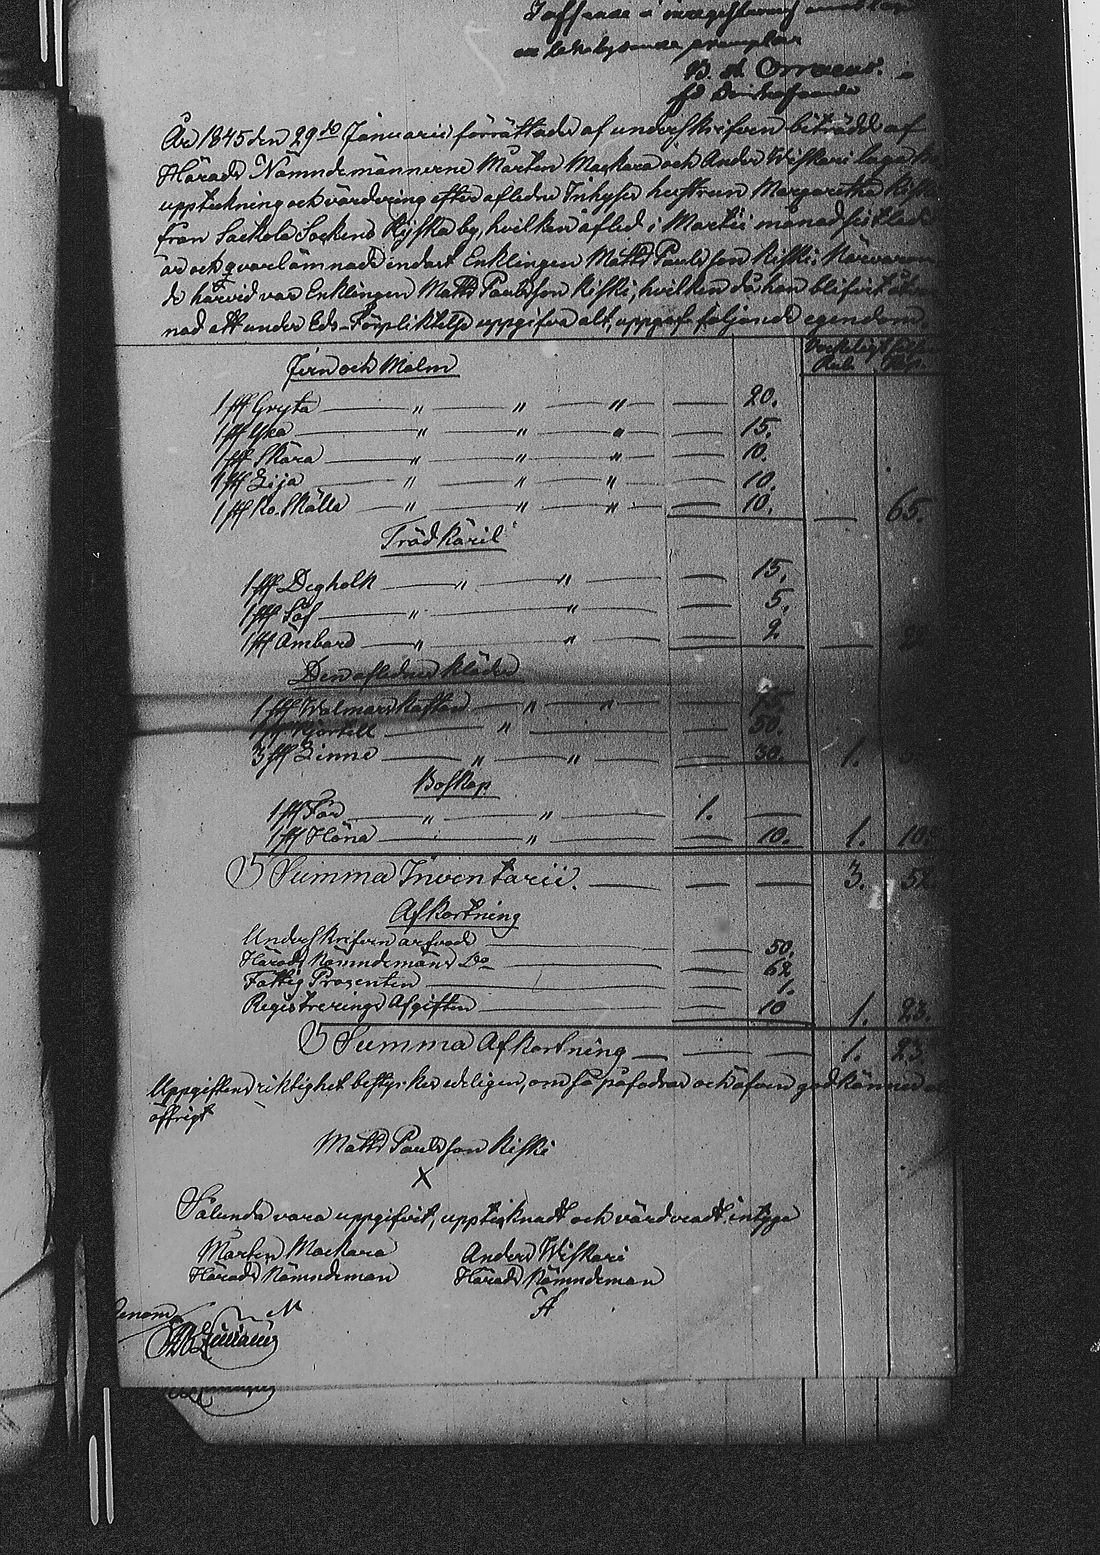 År 1845 den 29de Januarii förrättade af underskrifven biträdd af
Härads Nämndemännerne Mårten Mackara och Anders Wiskari laga
uppteckning och värdering efter afledne Inhyses hustrun Margaretha Riski
från Sackola Sockens Rijska by, hvilken afled i Martii månad sistledit
år och qvarlämnade endast Enklingen Matts Paulsson Riski. Närvaran-
de härvid var Enklingen Matts Paulsson Riski, hvilken då han blifvit
nad att under Eds-Förpliktelse uppgifva alt, uppgaf följande egendom.
Jern och Malm
1 st Gryta — " — " — " — 20.
1 st Yxa — " — " — " — 15.
1 st Skära — " — " — " — 10.
1 st Lija — " — " — " — 10.
1 st Ko-Skälla — " — " — " — 10. — 65.
Trädkäril
1 st Degholk — " — " — 15.
1 st Så — " — " — 5.
1 st Ämbare — " — " — 2
Den aflednes kläder
1 st Walmars kaftan — " — " — 75.
1 st Kjortell — " — 50.
3 st Linne — " — " — 30. 1.
Boskap
1 st Får — " — " — 1. —
1 st Höna — " — 10. 1. 10.
Summa Inventarii. — 3. 52
Afkortning
Underskrifven arfvode — 50.
Härads Nämndemäns Do — 62.
Fattig Procenten — 1.
Registrerings Afgiften — 10 1. 23.
Summa Afkortning — 1. 23
Uppgiftens riktighet bestyrkes edeligen, om så påfodras och äfven godkännes
öffrigt
Matts Paulsson Riski
X
Sålunda vara uppgifvit, upptecknadt och värderadt, intyga
Mårten Mackara Anders Wiskari
Härads Nämndeman Härads Nämndeman
M